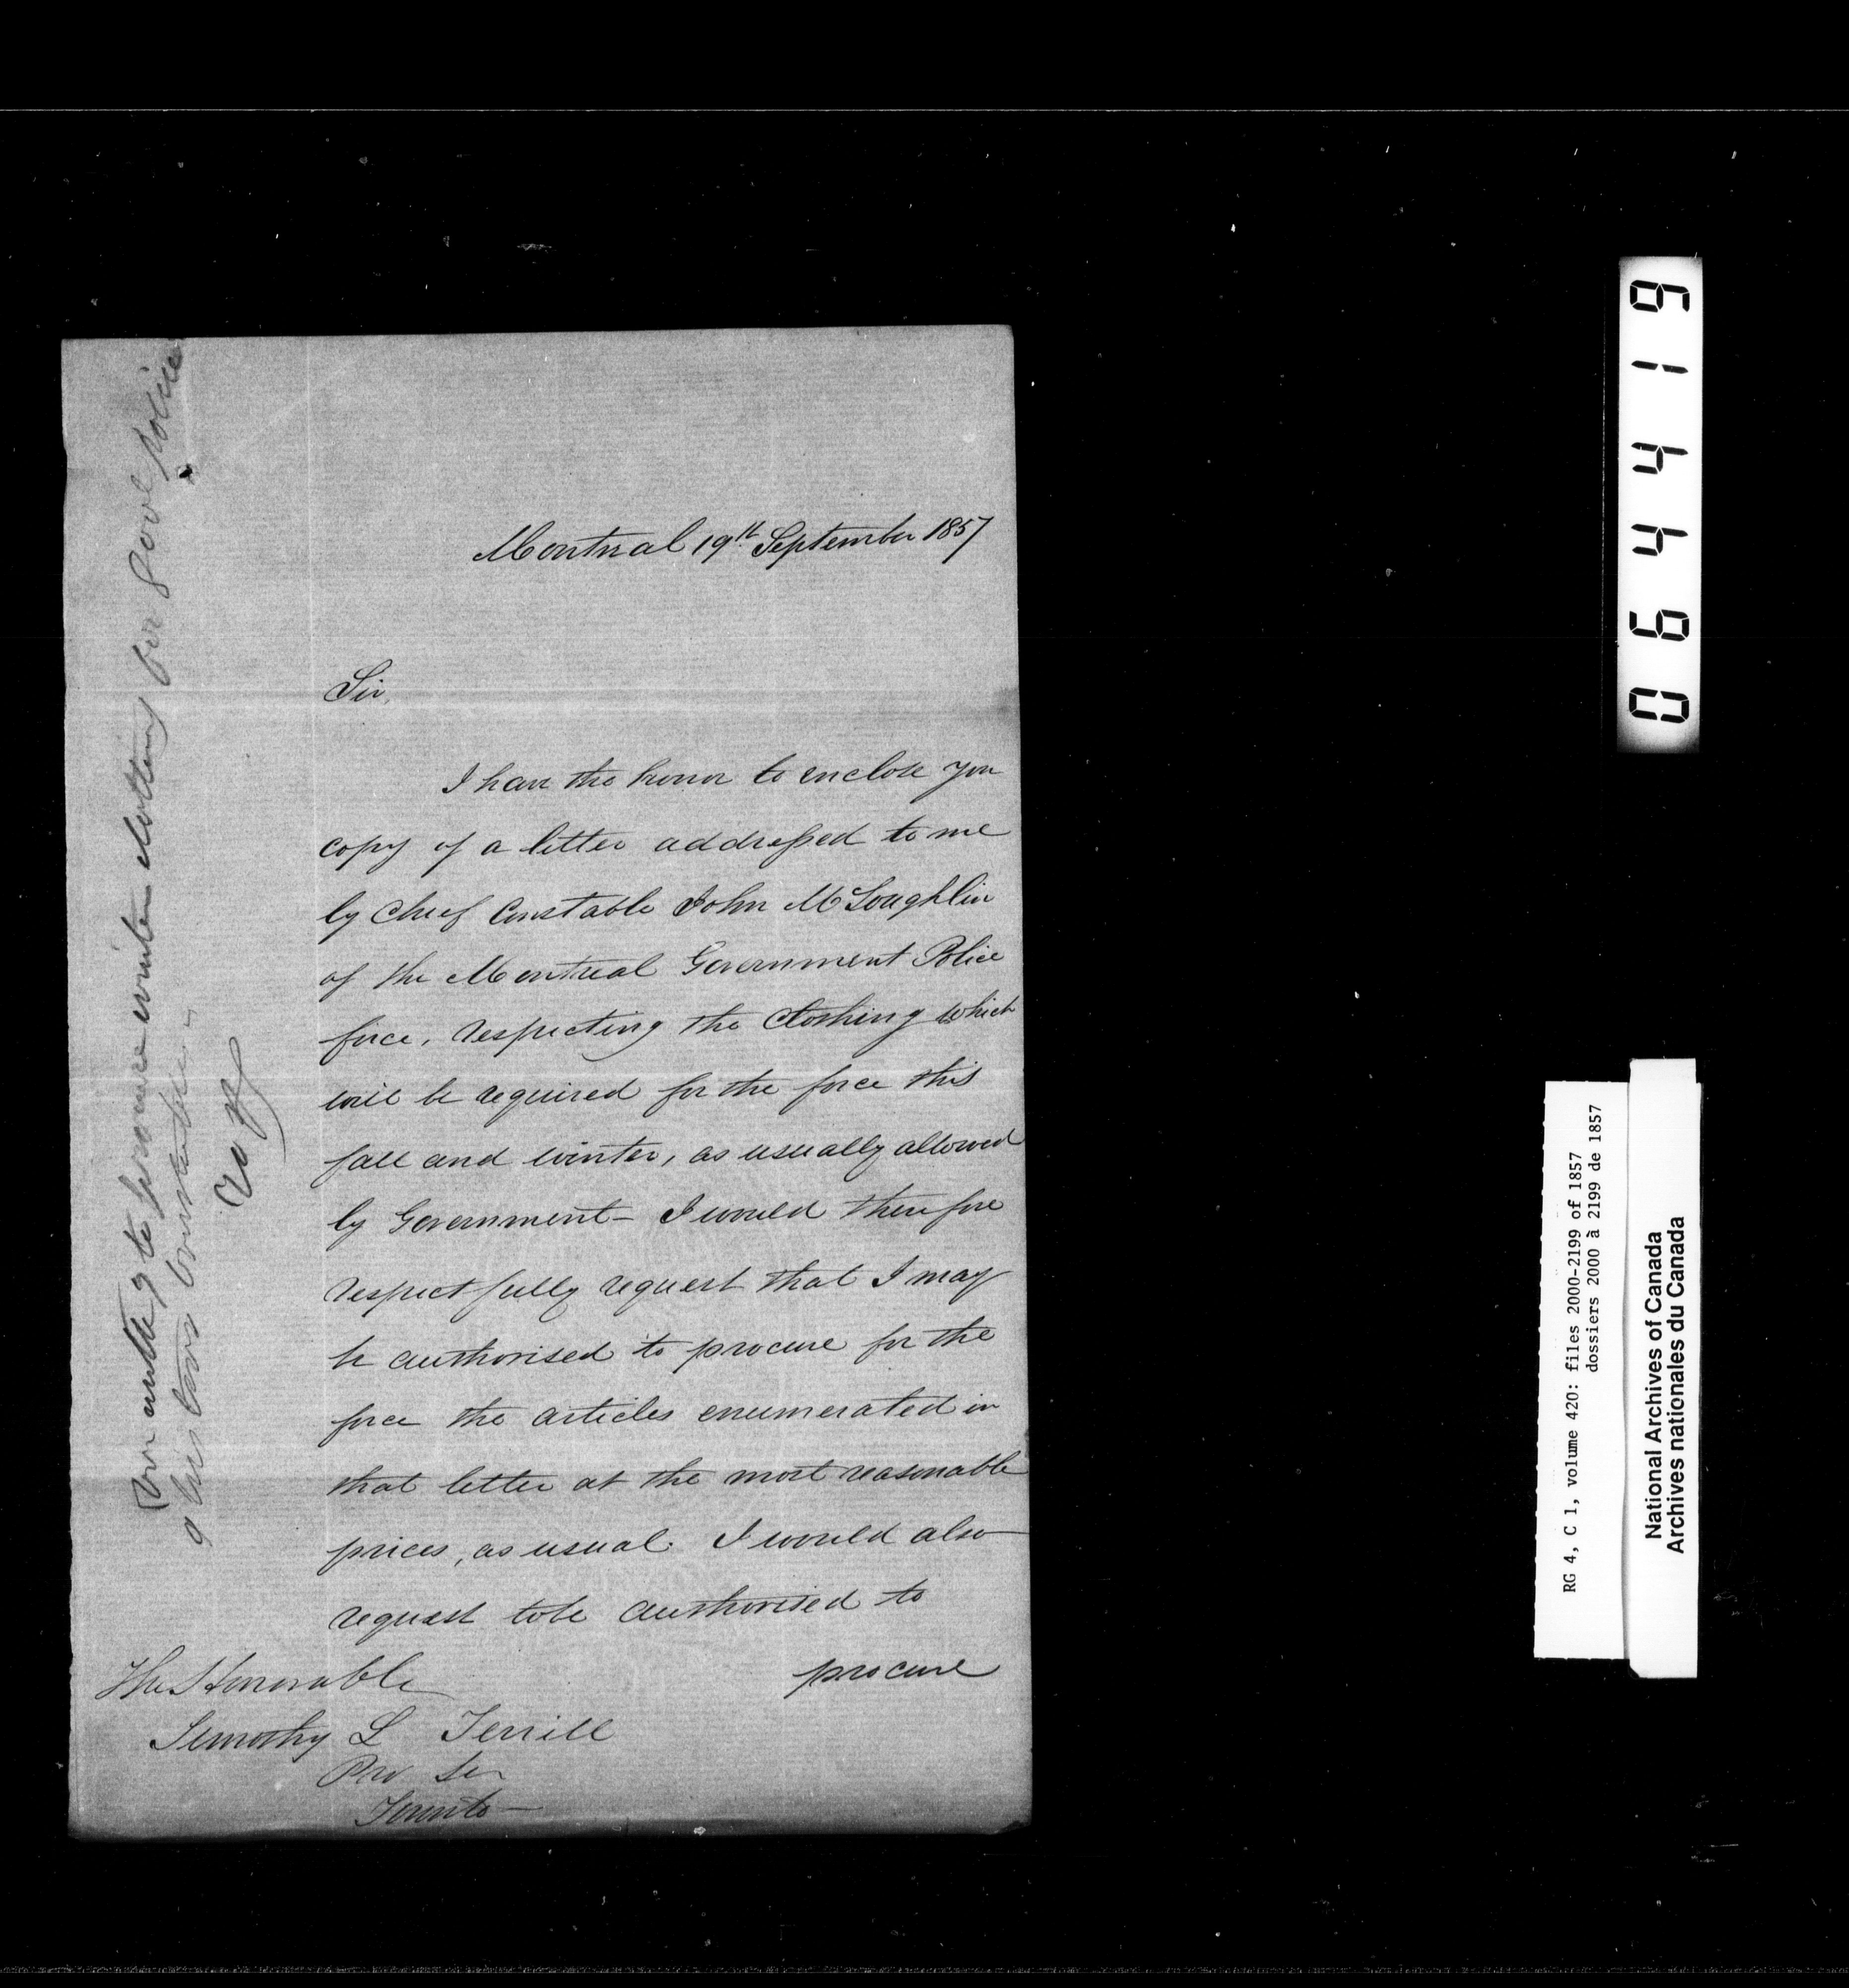 Montreal 19th September 1857
Sir,
I have the honor to enclose you
copy of a letter addressed to me
by Chief Constable John McLoughlin
of the Montreal Government Police
force, respecting the Clothing which
will be required for the force this
fall and winter, as usually allowed
by Government – I would therefore
respectfully request that I may
be authorised to procure for the
force the articles enumerated in
that letter at the most reasonable
prices, as usual. I would also
request to be authorised to
procure
The Honorable
Timothy L Terrill
Pro Sec
Toronto –
to procure winter clothing for Govt police
064419
RG 4, C 1, volume 420: files 2000-2199 of 1857
dossiers 2000 à 2199 de 1857
National Archives of Canada
Archives nationales du Canada